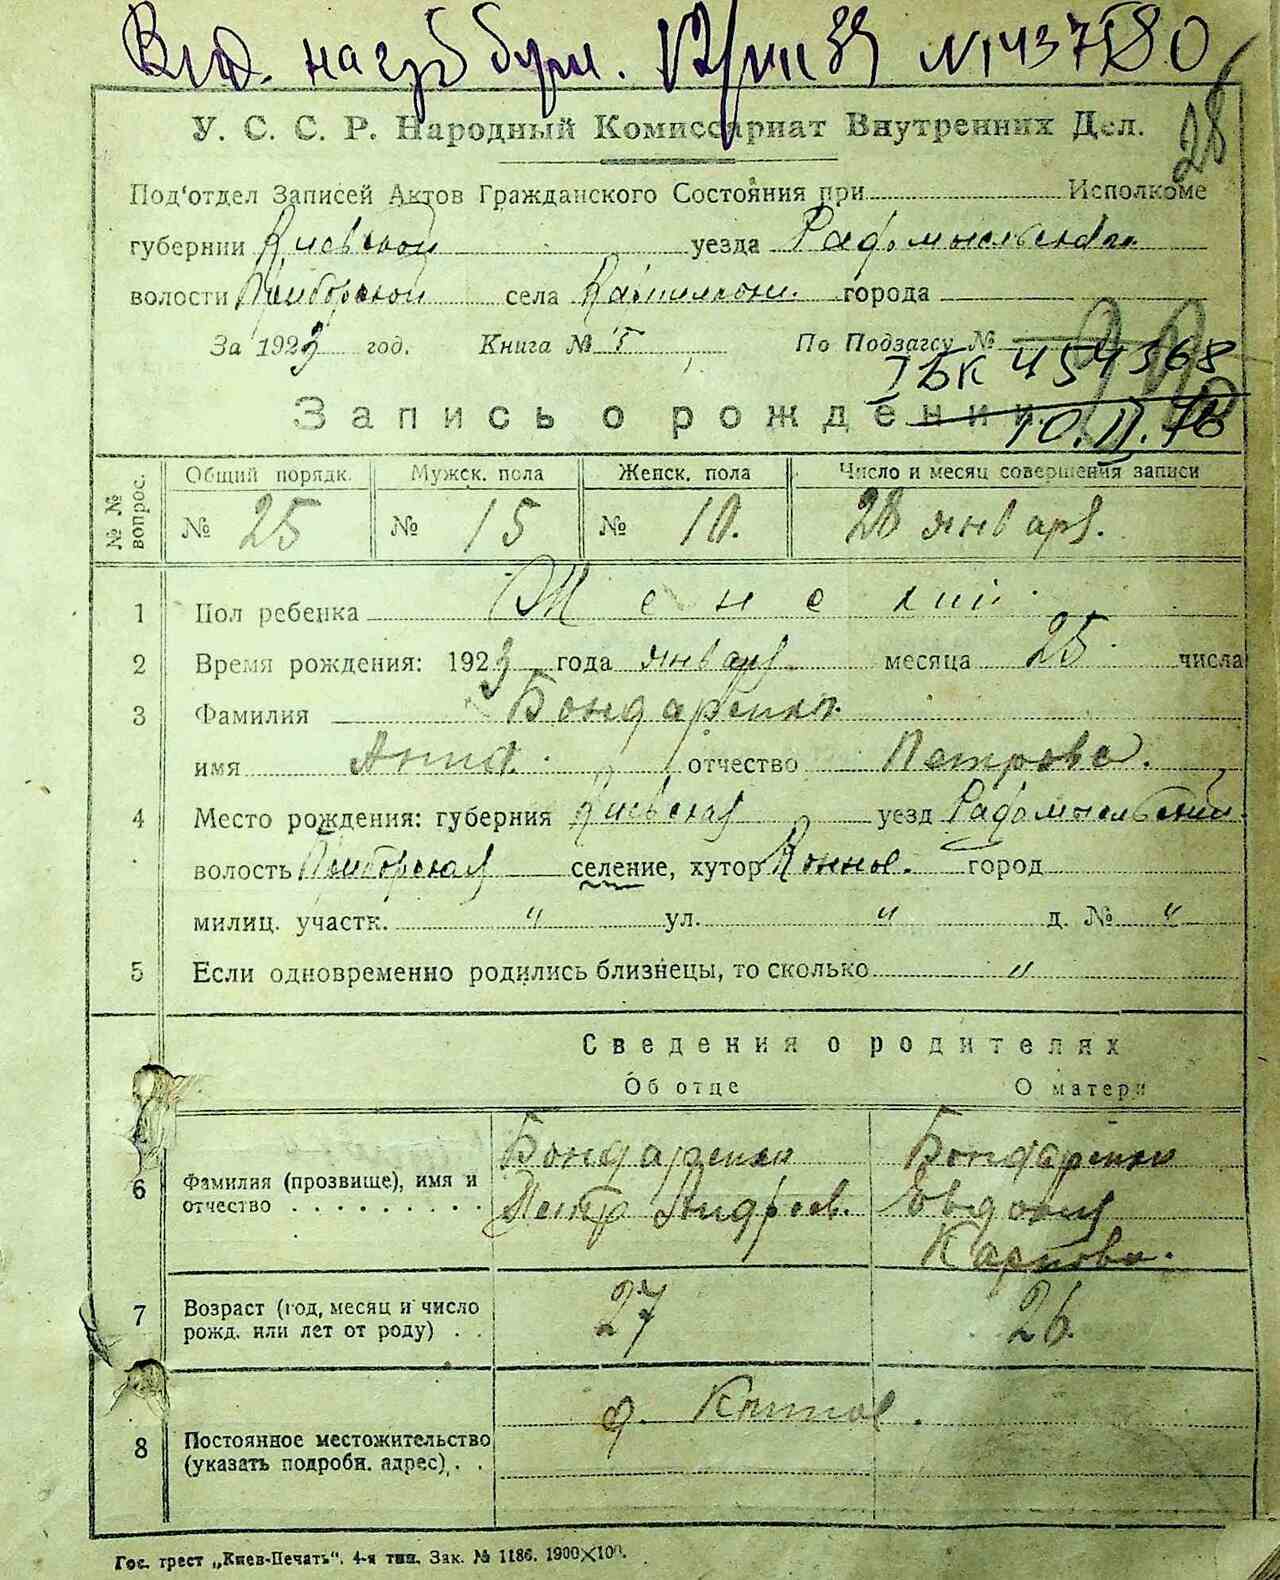 У. С. С. Р. Народный Комиссариат Внутренних Дел.
28
Под‘отдел Записей Актов Гражданского Состояния при Исполкоме
губернии Киевской уезда Радомысльского
волости Приборской села города
За 1923 год. Книга № По Подзагсу №
ІБК 454368
Запись о рождении.
10.II.76
№№ вопрос. Общий порядк. Мужск. пола Женск. пола Число и месяц совершения записи
№ 25 № 15 № 10. 28 января.
1 Пол ребенка Женский
2 Время рождения: 1923 года января месяца 25 числа
3 Фамилия Бондаренко
имя Анна. отчество Петрова.
4 Место рождения: губерния Киевская уезд Радомысльский
волость Приборская селение, хутор город
милиц. участк. " ул. " д. № "
5 Если одновременно родились близнецы, то сколько "
Сведения о родителях
Об отце О матери
6 Фамилия (прозвище), имя и отчество . . . . . . . . .
Бондаренко
Петр Андреев.
Бондаренко
Евдокия
Карпова.
7 Возраст (год, месяц и число рожд. или лет от роду) . . 27 26.
8 Постоянное местожительство (указать подробн. адрес) . . д.
Гос. трест „Киев-Печать“. 4-я тип. Зак. № 1186. 1900×100.